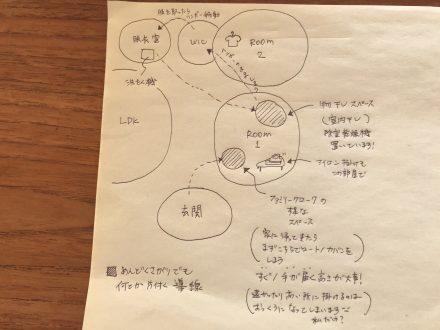 脱衣室
WIC
ROOM
2
洗たく機
LDK
ROOM
1
物干しスペース
(室内干し)
除湿乾燥機
置いています!
アイロン掛けも
この部屋で
玄関
ファミリークロークの
様な
スペース
家に帰ってきたら
まずこちらでコート/カバンを
しまう
すぐ手が届く高さが大事!
遠かったり高い所に掛けるのは
おっくうになってしまいます〜
私だけ?
めんどくさがりでも
何とか片付く導線